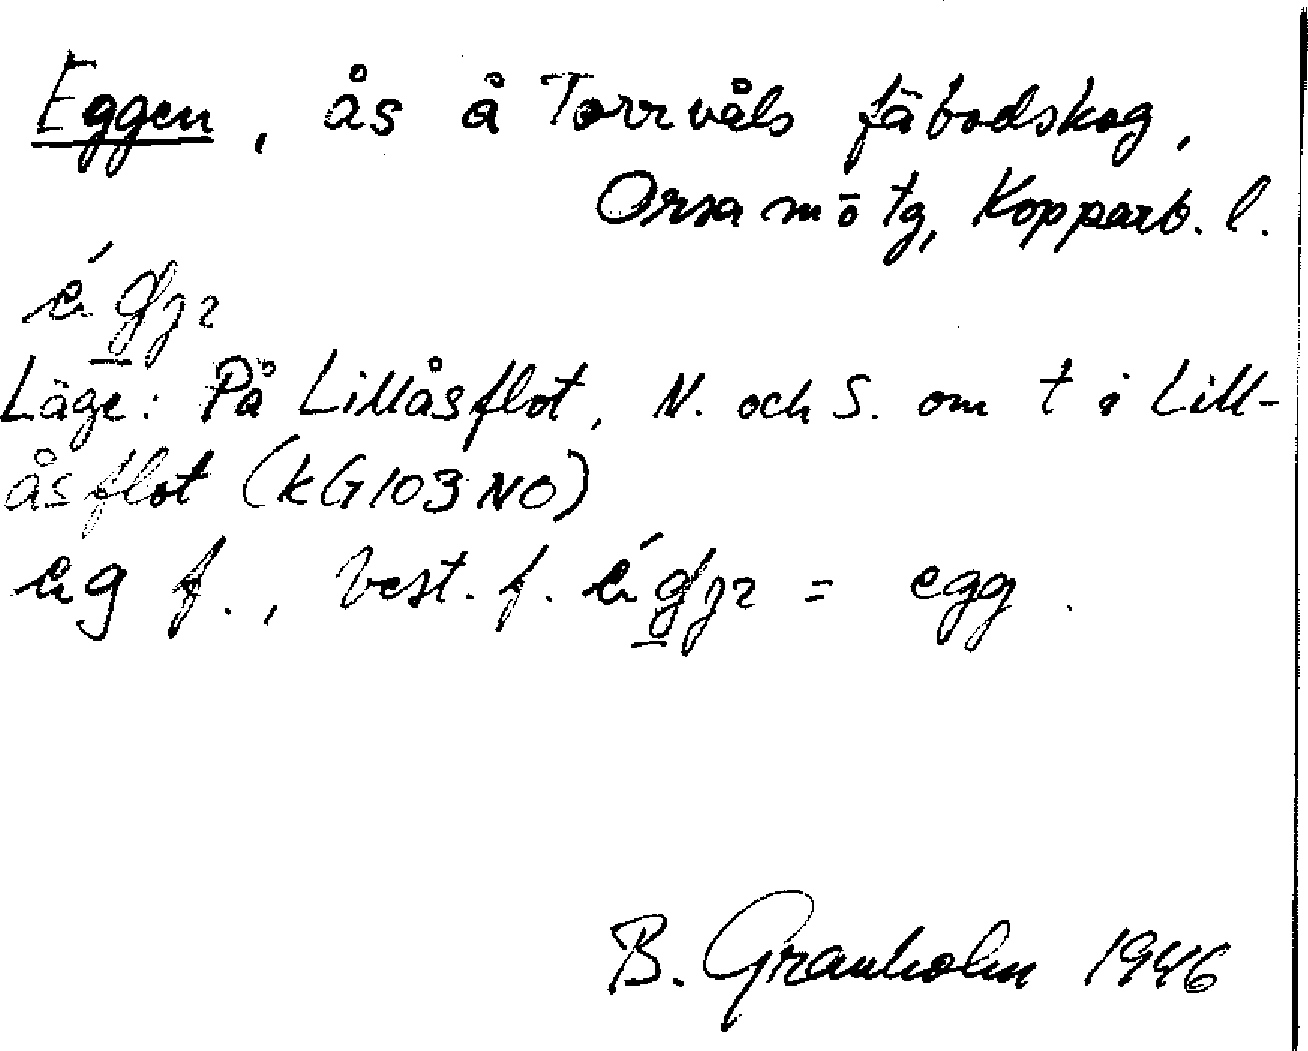 Eggen, ås å Torrvåls fäbodskog,
Orsa mō tg, Kopparb. l.
Läge: På Lillåsflot, N. och S. om t i Lill-
åsflot (kG103NO)
f., best. f. = egg.
B. Granholm 1946